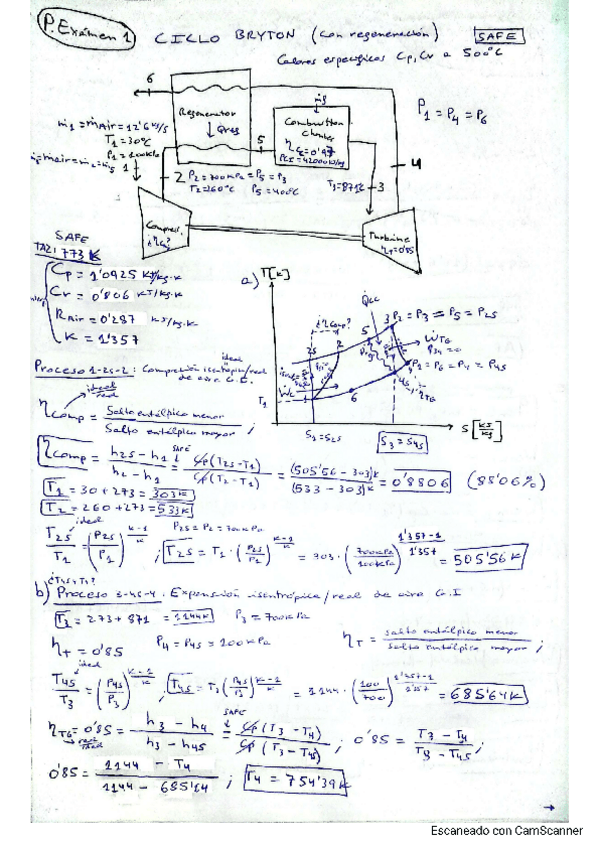 P. Exámen 1
CICLO BRYTON (con regeneración)
SAFE
Calores específicos Cp, Cv a 500°C
6
Regenerator
↓ Qreg
Combustion
Chamber
ηcc = 0'97
PCI = 42000 kJ/kg
P1 = P4 = P6
ṁ1 = ṁAir = 12'6 kg/s
T1 = 30°C
P1 = 100kPa
1
5
4
2
P2 = 700kPa = P5 = P3
T2 = 260°C P5 = 400°C
T3 = 871°C
3
Compres.
¿ηc?
Turbine
ηT = 0'85
SAFE
TA21 773 K
Cp = 1'0925 KJ/kg·K
Cv = 0'806 KJ/kg·K
RAir = 0'287 KJ/kg·K
K = 1'357
a)
T[K]
Q̇cc
¿ηComp?
3 P2 = P3 = P5 = P2s
ẆTG
P1 = P6 = P4 = P4s
T1
S1 = S2s
S3 = S4s
S [KJ/Kg]
Proceso 1-2s-2: Compresión isentrópica/real
ideal
de aire G.I.
ideal
real
ηComp = Salto entálpico menor / Salto entálpico mayor ;
ηComp = h2s - h1 / h2 - h1 = SAFE Cp (T2s - T1) / Cp (T2 - T1) = (505'56 - 303)K / (533 - 303)K = 0'8806 (88'06%)
T1 = 30 + 273 = 303K
T2 = 260 + 273 = 533K
ideal
P2s = P2 = 700kPa
T2s / T1 = (P2s / P1)^(K-1 / K) ; T2s = T1 · (P2s / P1)^(K-1 / K) = 303 · (700kPa / 100kPa)^(1'357-1 / 1'357) = 505'56 K
¿T4s, T4?
b) Proceso 3-4s-4. Expansión isentrópica/real de aire G.I
T3 = 273 + 871 = 1144K P3 = 700kPa
ηT = 0'85 P4 = P4s = 100kPa ηT = salto entálpico menor / salto entálpico mayor ;
ideal
T4s / T3 = (P4s / P3)^(K-1 / K) ; T4s = T3 (P4s / P3)^(K-1 / K) = 1144 · (100 / 700)^(1'357-1 / 1'357) = 685'64K
ηTG = 0'85 = h3 - h4 / h3 - h4s = SAFE Cp (T3 - T4) / Cp (T3 - T4s) ; 0'85 = T3 - T4 / T3 - T4s ;
real
ideal
0'85 = 1144 - T4 / 1144 - 685'64 ; T4 = 754'39K
→
Escaneado con CamScanner